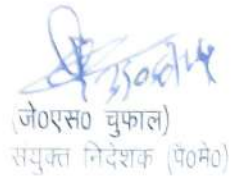 (जे०एस० चुफाल)
संयुक्त निदेशक (पे०मे०)